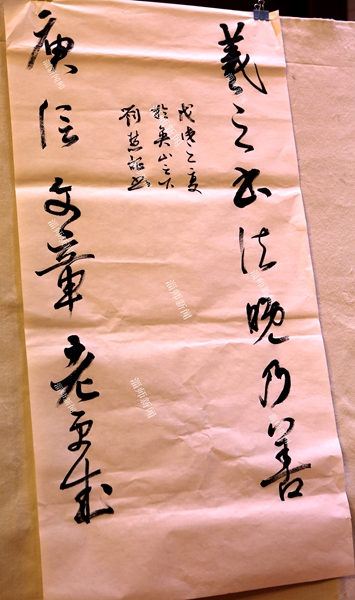 羲之书法晚乃善
戊戌之夏
於山之下
书
庾信文章老更成